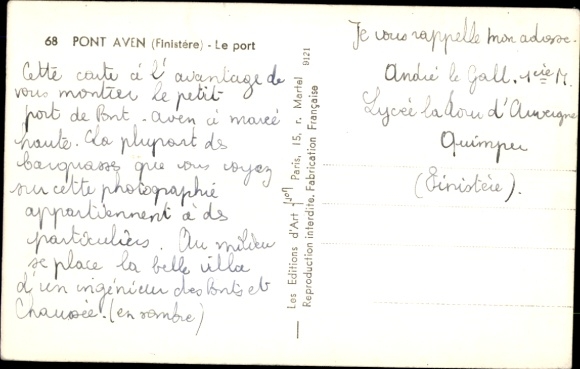 68 PONT AVEN (Finistére) - Le port
Cette carte à l'avantage de
vous montrer le petit
port de Pont-Aven à marée
haute. La plupart des
barquasses que vous voyez
sur cette photographie
appartiennent à des
particuliers. Au milieu
se place la belle villa
d'un ingénieur des Ponts et
Chaussée. (en sombre)
Les Editions d'Art "Jos" Paris, 15, r. Martel 9121
Reproduction interdite. Fabrication Française
Je vous rappelle mon adresse.
André le Gall. 1ière M.
Lycée la Tour d'Auvergne
Quimper
(Finistère).